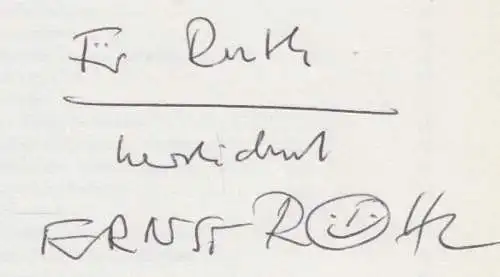 Für Ruth
herzlichst
ERNST RÖTH